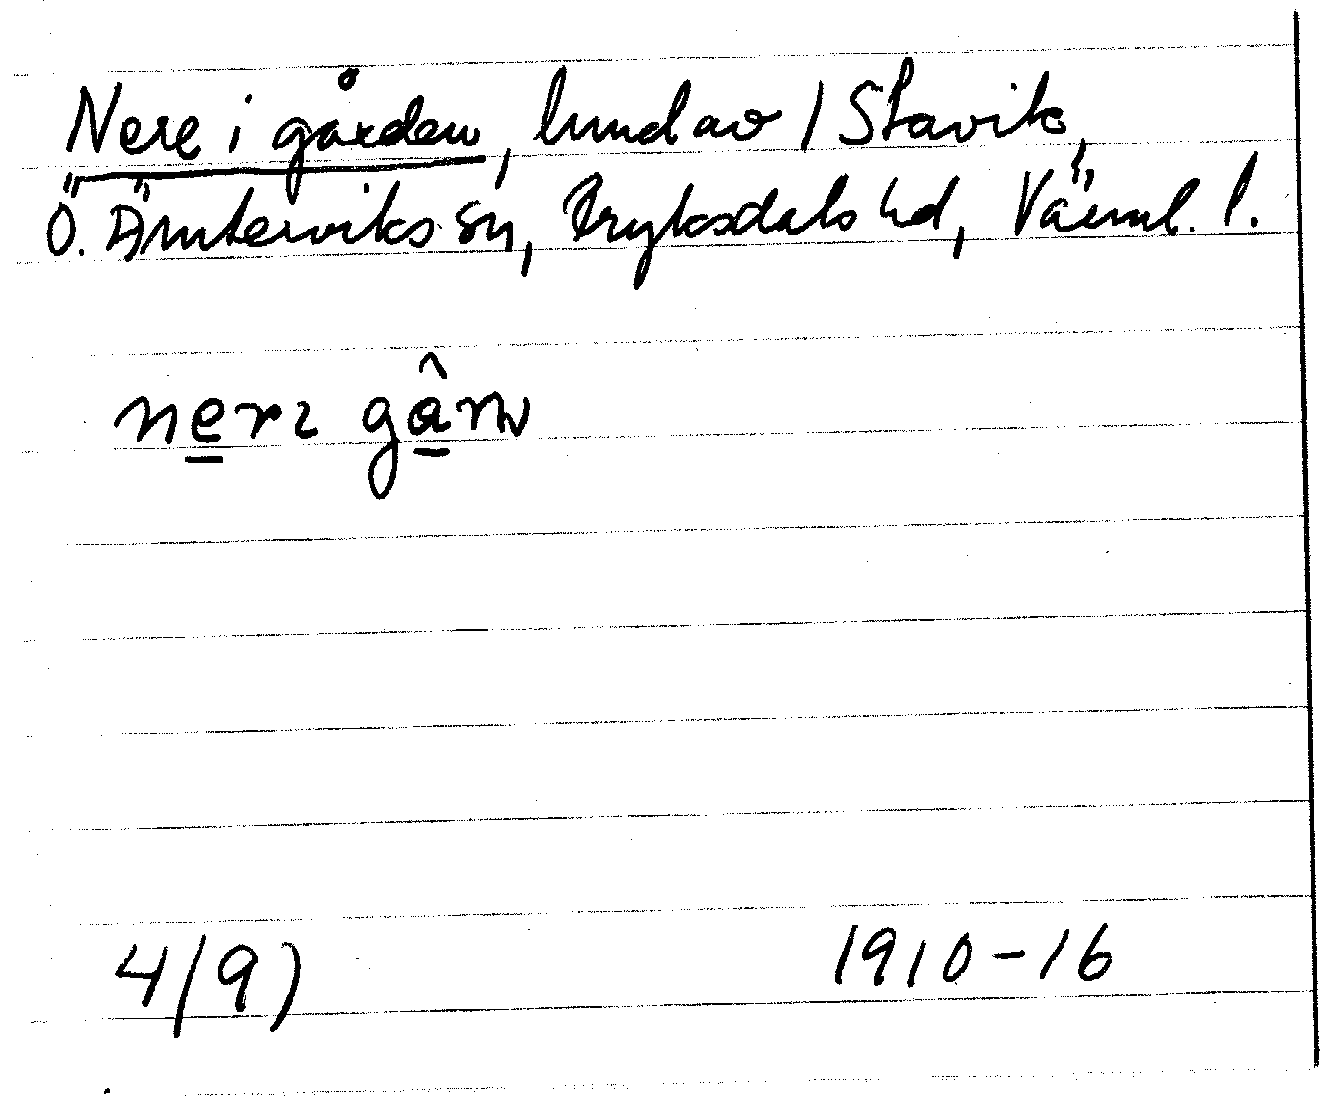 Nere i gården, hmd av / Stavik,
Ö. Ämterviks sn, Fryksdals hd, Värml. l.
nerɩ gân
4/9)
1910-16